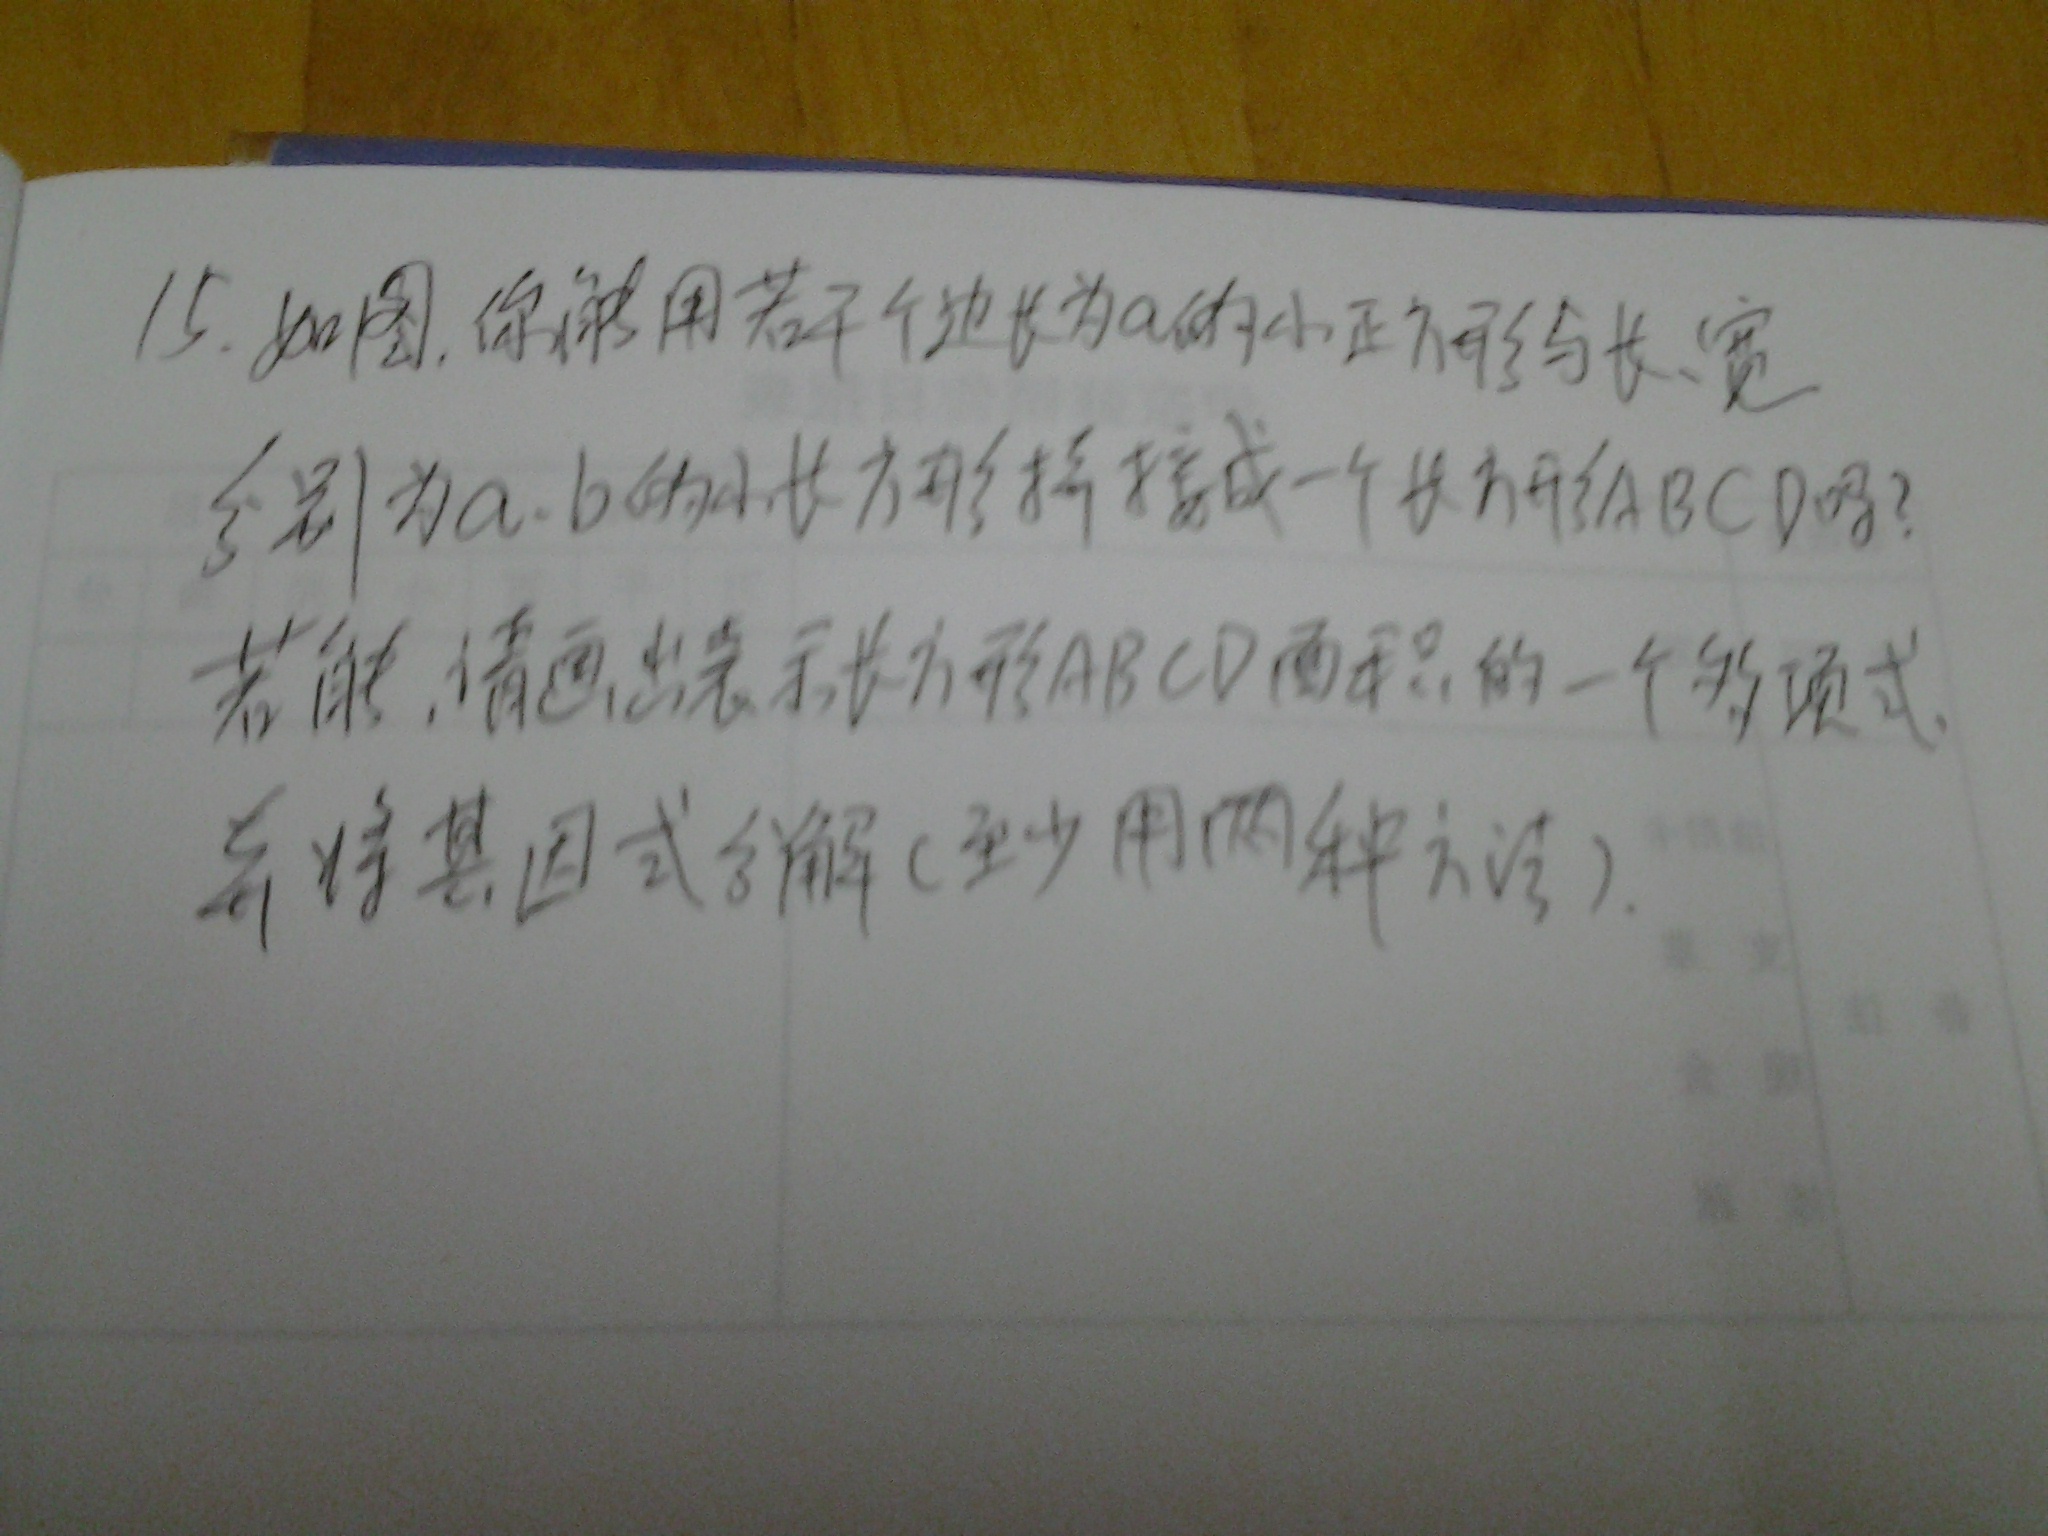 15.如图,你能用若干个边长为a的小正方形与长、宽
分别为a、b的小长方形拼接成一个长方形ABCD吗?
若能,请画出表示长方形ABCD面积的一个多项式,
并将其因式分解(至少用两种方法).